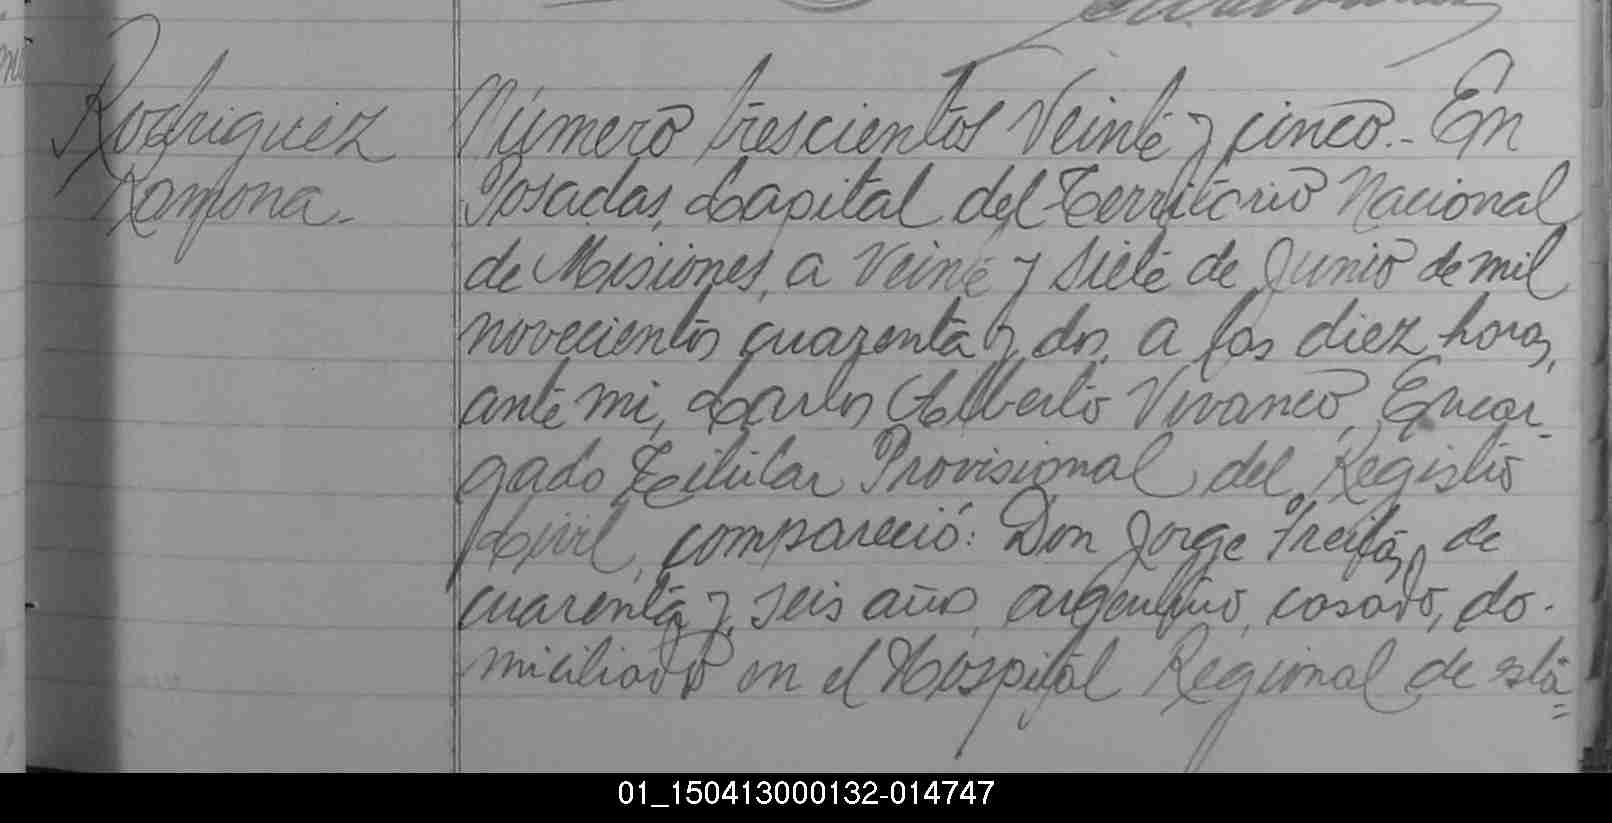 Rodriguez
Ramona.
Número trescientos Veinte y cinco.- En
Posadas, Capital del Territorio Nacional
de Misiones, a Veinte y siete de Junio de mil
novecientos cuarenta y dos, a las diez horas,
ante mi, Carlos Alberto Vivanco, Encar-
gado Titular Provisional del Registro
Civil, compareció: Don Jorge Freitas, de
cuarenta y seis años, argentino, casado, do-
miciliado en el Hospital Regional de esta=
01_150413000132-014747